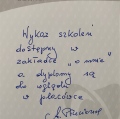 Wykaz szkoleń
dostępny w
zakładce „o mnie”
a dyplomy są
do wglądu
w placówce